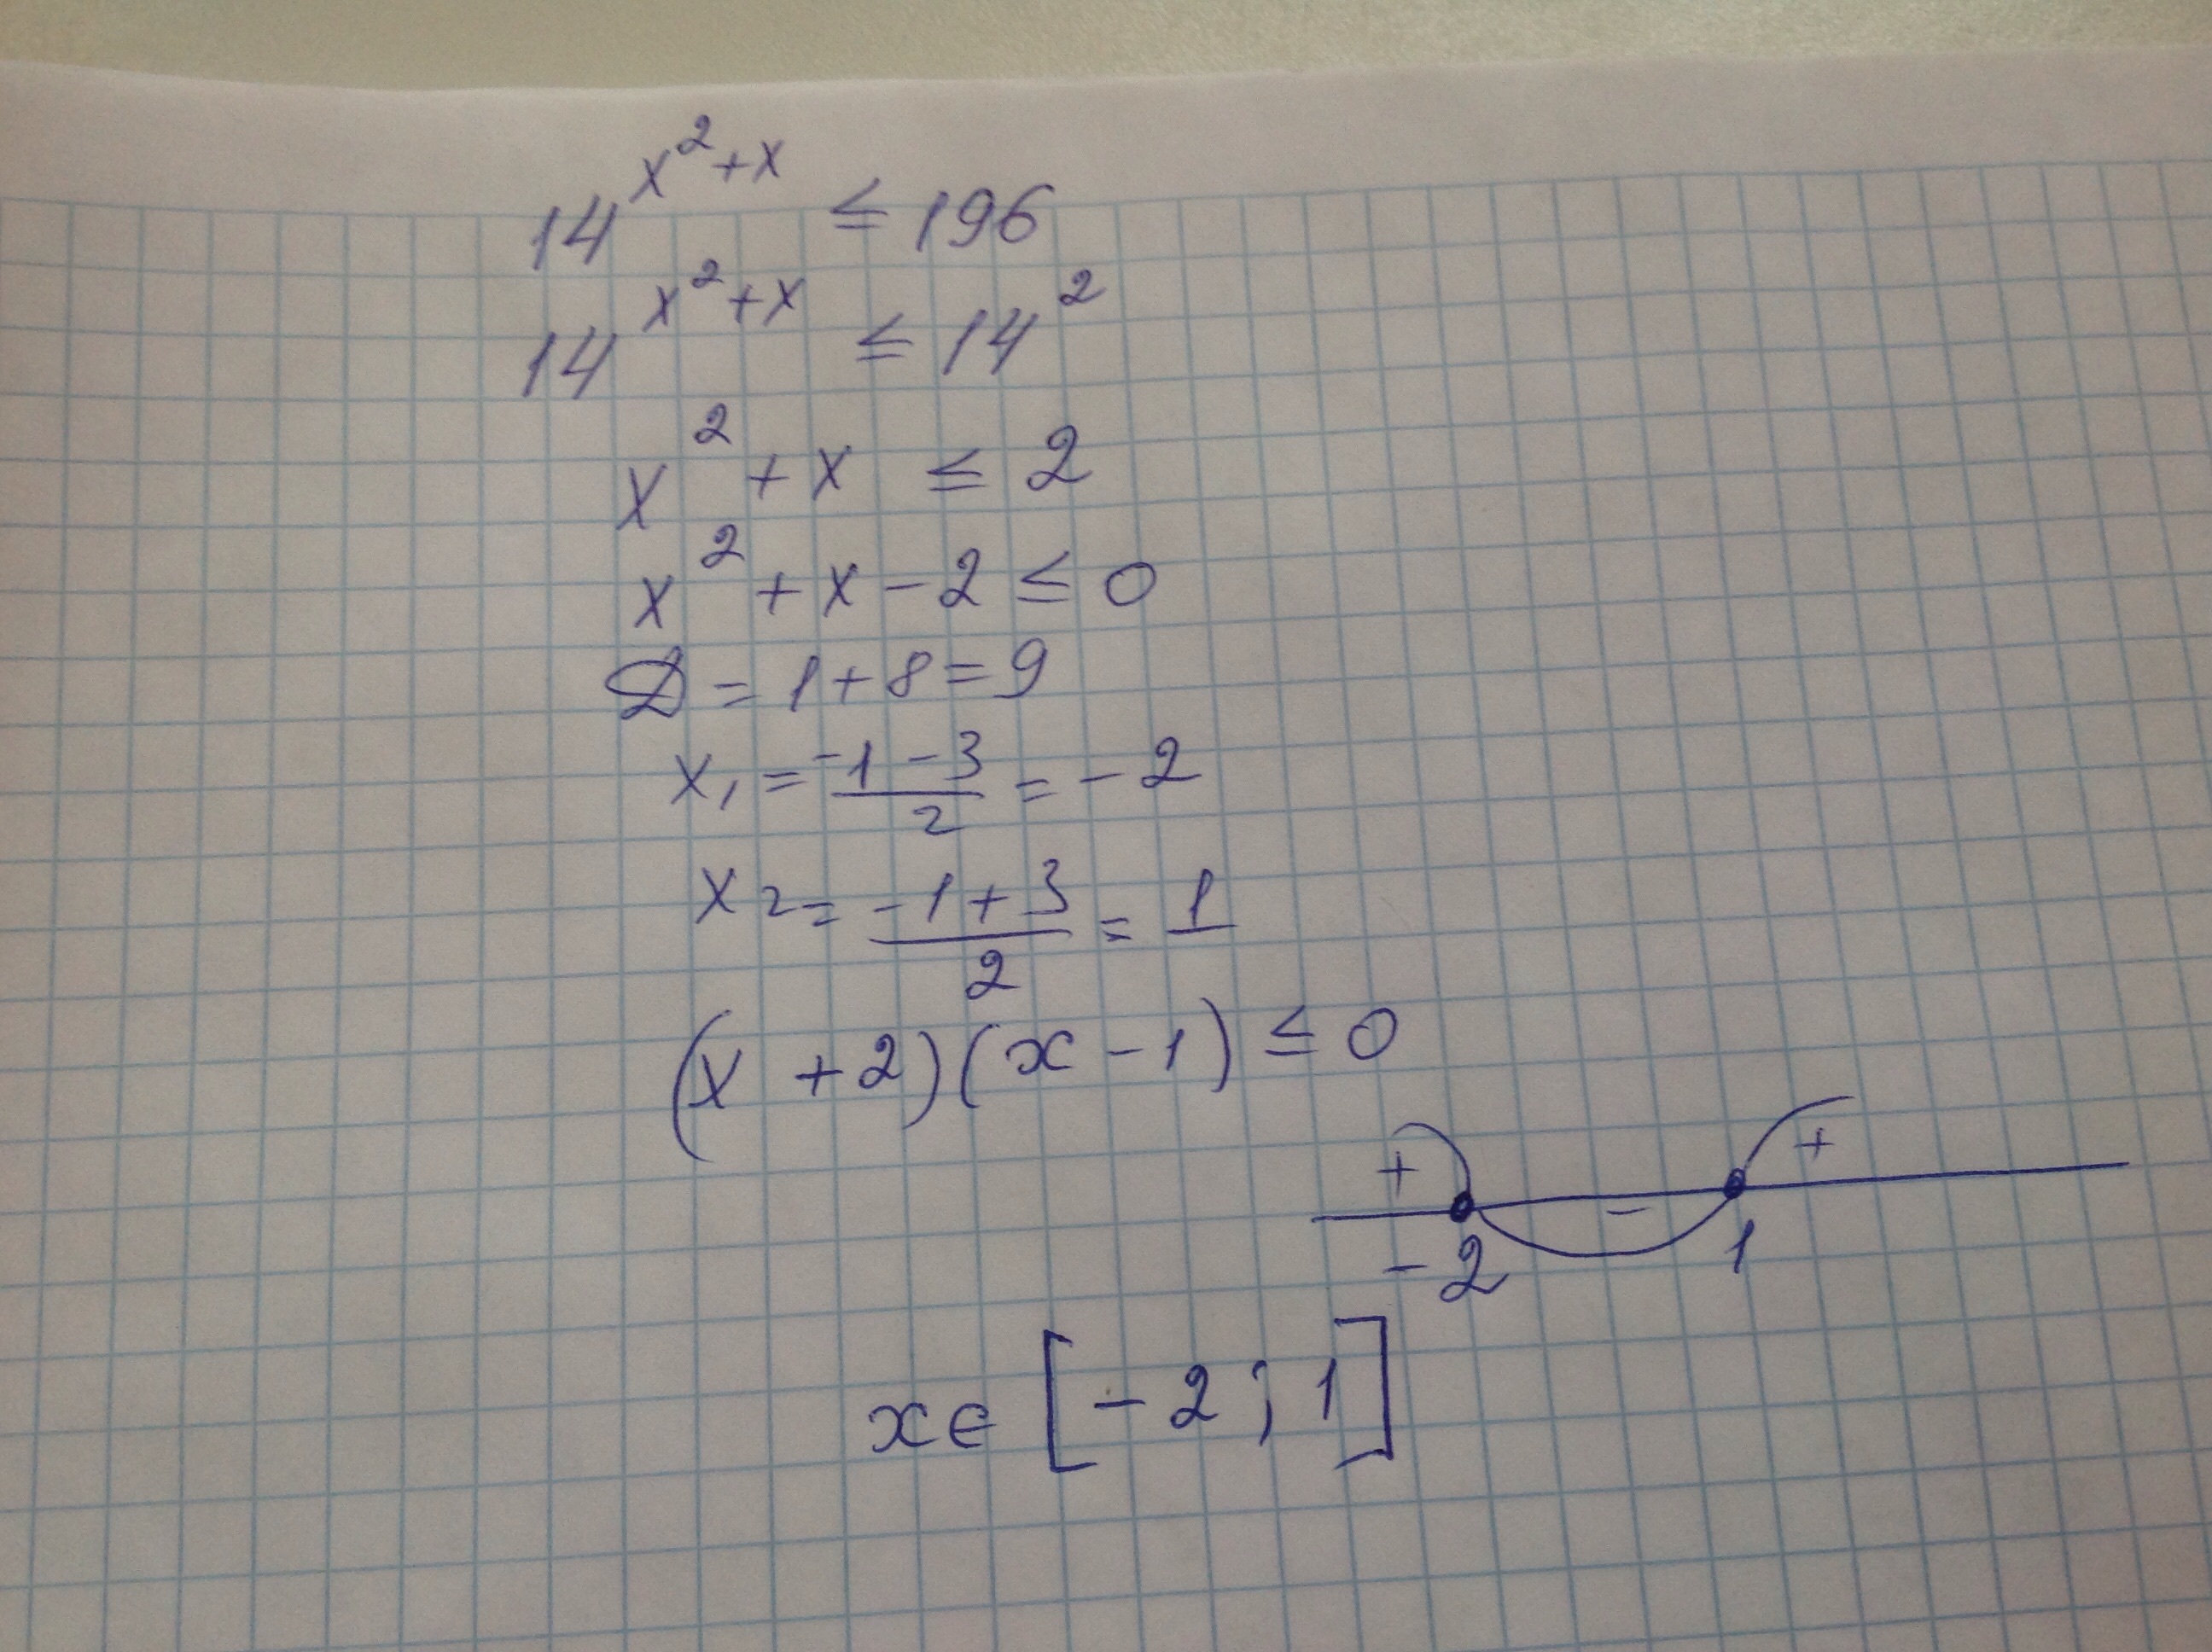 14^{x^2+x} ≤ 196
14^{x^2+x} ≤ 14^2
x^2 + x ≤ 2
x^2 + x - 2 ≤ 0
D = 1 + 8 = 9
x_1 = \frac{-1-3}{2} = -2
x_2 = \frac{-1+3}{2} = 1
(x + 2)(x - 1) ≤ 0
+ - +
-2 1
x ∈ [-2; 1]